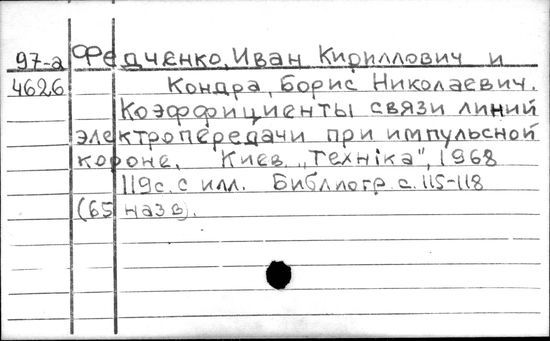 97-а Федченко, Иван Кириллович и
4626 Кондра, Борис Николаевич.
Коэффициенты связи линий
электропередачи при импульсной
короне. Киев, „Техніка", 1968
119с. с илл. Библиогр. с. 115-118
(65 назв).